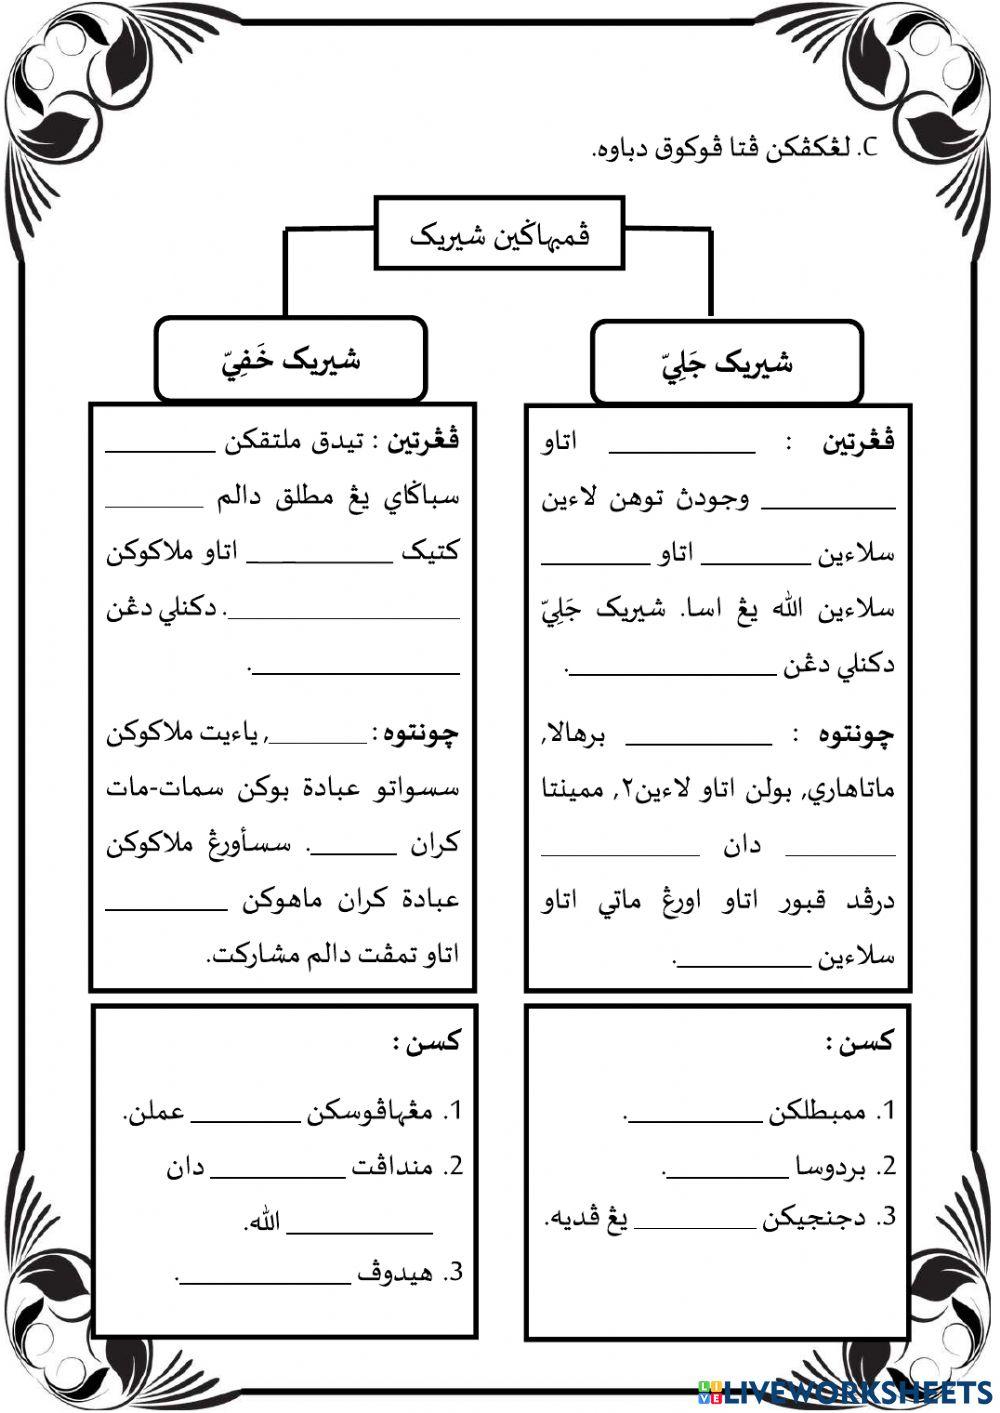 C. لڠکڤکن ڤتا ڤوکوق دباوه.
ڤمبهاݢين شيريک
شيريک جَلِيّ
ڤڠرتين : __________ اتاو
__________ وجودڽ توهن لاءين
سلاءين ________ اتاو ________
سلاءين الله يڠ اسا. شيريک جَلِيّ
دکنلي دڠن ______________.
چونتوه : __________ برهالا,
ماتاهاري, بولن اتاو لاءين٢, ممينتا
________ دان __________
درڤد قبور اتاو اورڠ ماتي اتاو
سلاءين _________.
کسن :
1. ممبطلکن _________.
2. بردوسا ________.
3. دجنجيکن ________ يڠ ڤديه.
شيريک خَفِيّ
ڤڠرتين : تيدق ملتقکن ________
سباݢاي يڠ مطلق دالم _______
کتيک __________ اتاو ملاکوکن
________________. دکنلي دڠن
______________.
چونتوه : _______, ياءيت ملاکوکن
سسواتو عبادة بوکن سمات-مات
کران ______. سسأورڠ ملاکوکن
عبادة کران ماهوکن ________
اتاو تمڤت دالم مشارکت.
کسن :
1. مڠهاڤوسکن _______ عملن.
2. منداڤت _________ دان
__________ الله.
3. هيدوڤ ___________.
LIVE LIVEWORKSHEETS